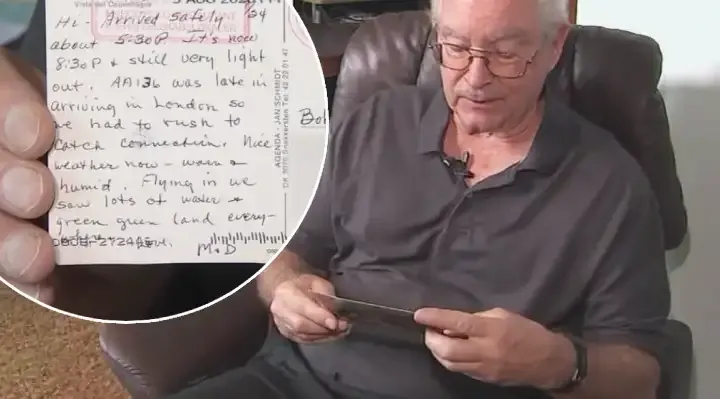 Vista del Copenhague
Hi - Arrived safely 7/24
about 5:30P. It's now
8:30P & still very light
out. AA136 was late in
arriving in London so
we had to rush to
catch connection. Nice
weather now - warm &
humid. Flying in we
saw lots of water &
green green land every-
where. Love,
M+D
AGENDA - JAN SCHMIDT
DK 3070 Snekkersten Tel. 42 22 01 42
Bob